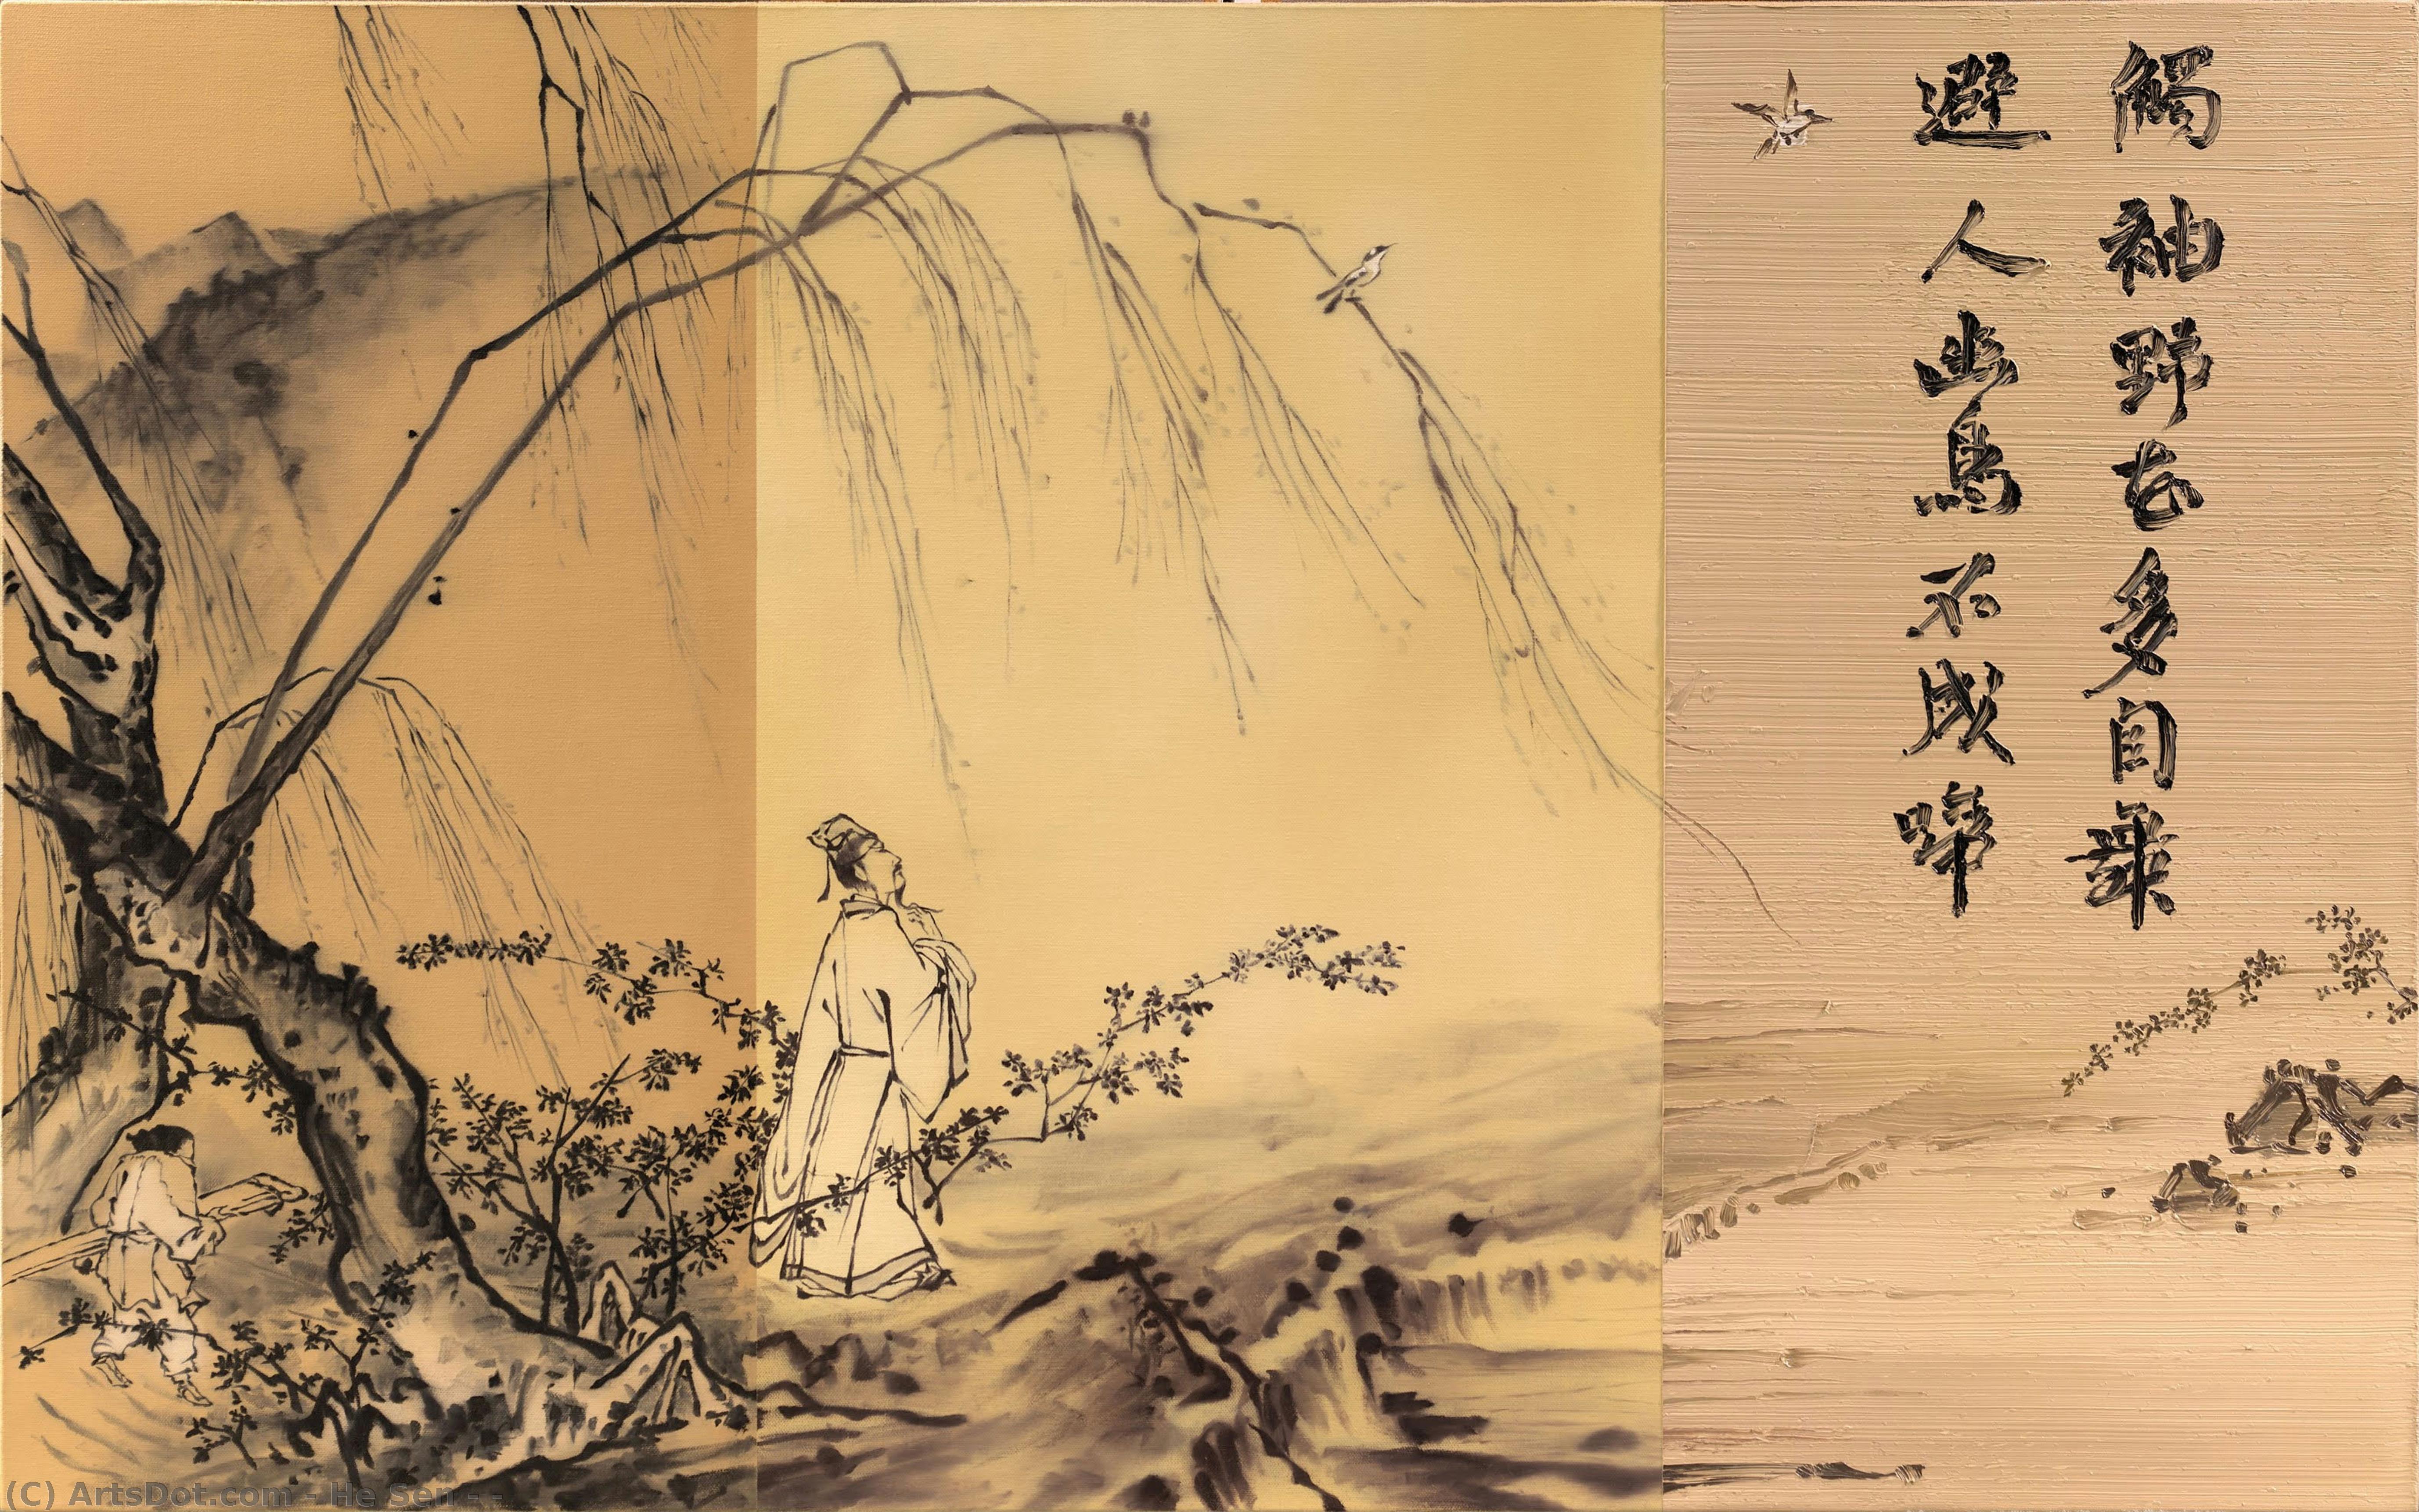 觸袖野花多自舞
避人幽鳥不成啼
(C) ArtsDot.com - He Sen - -